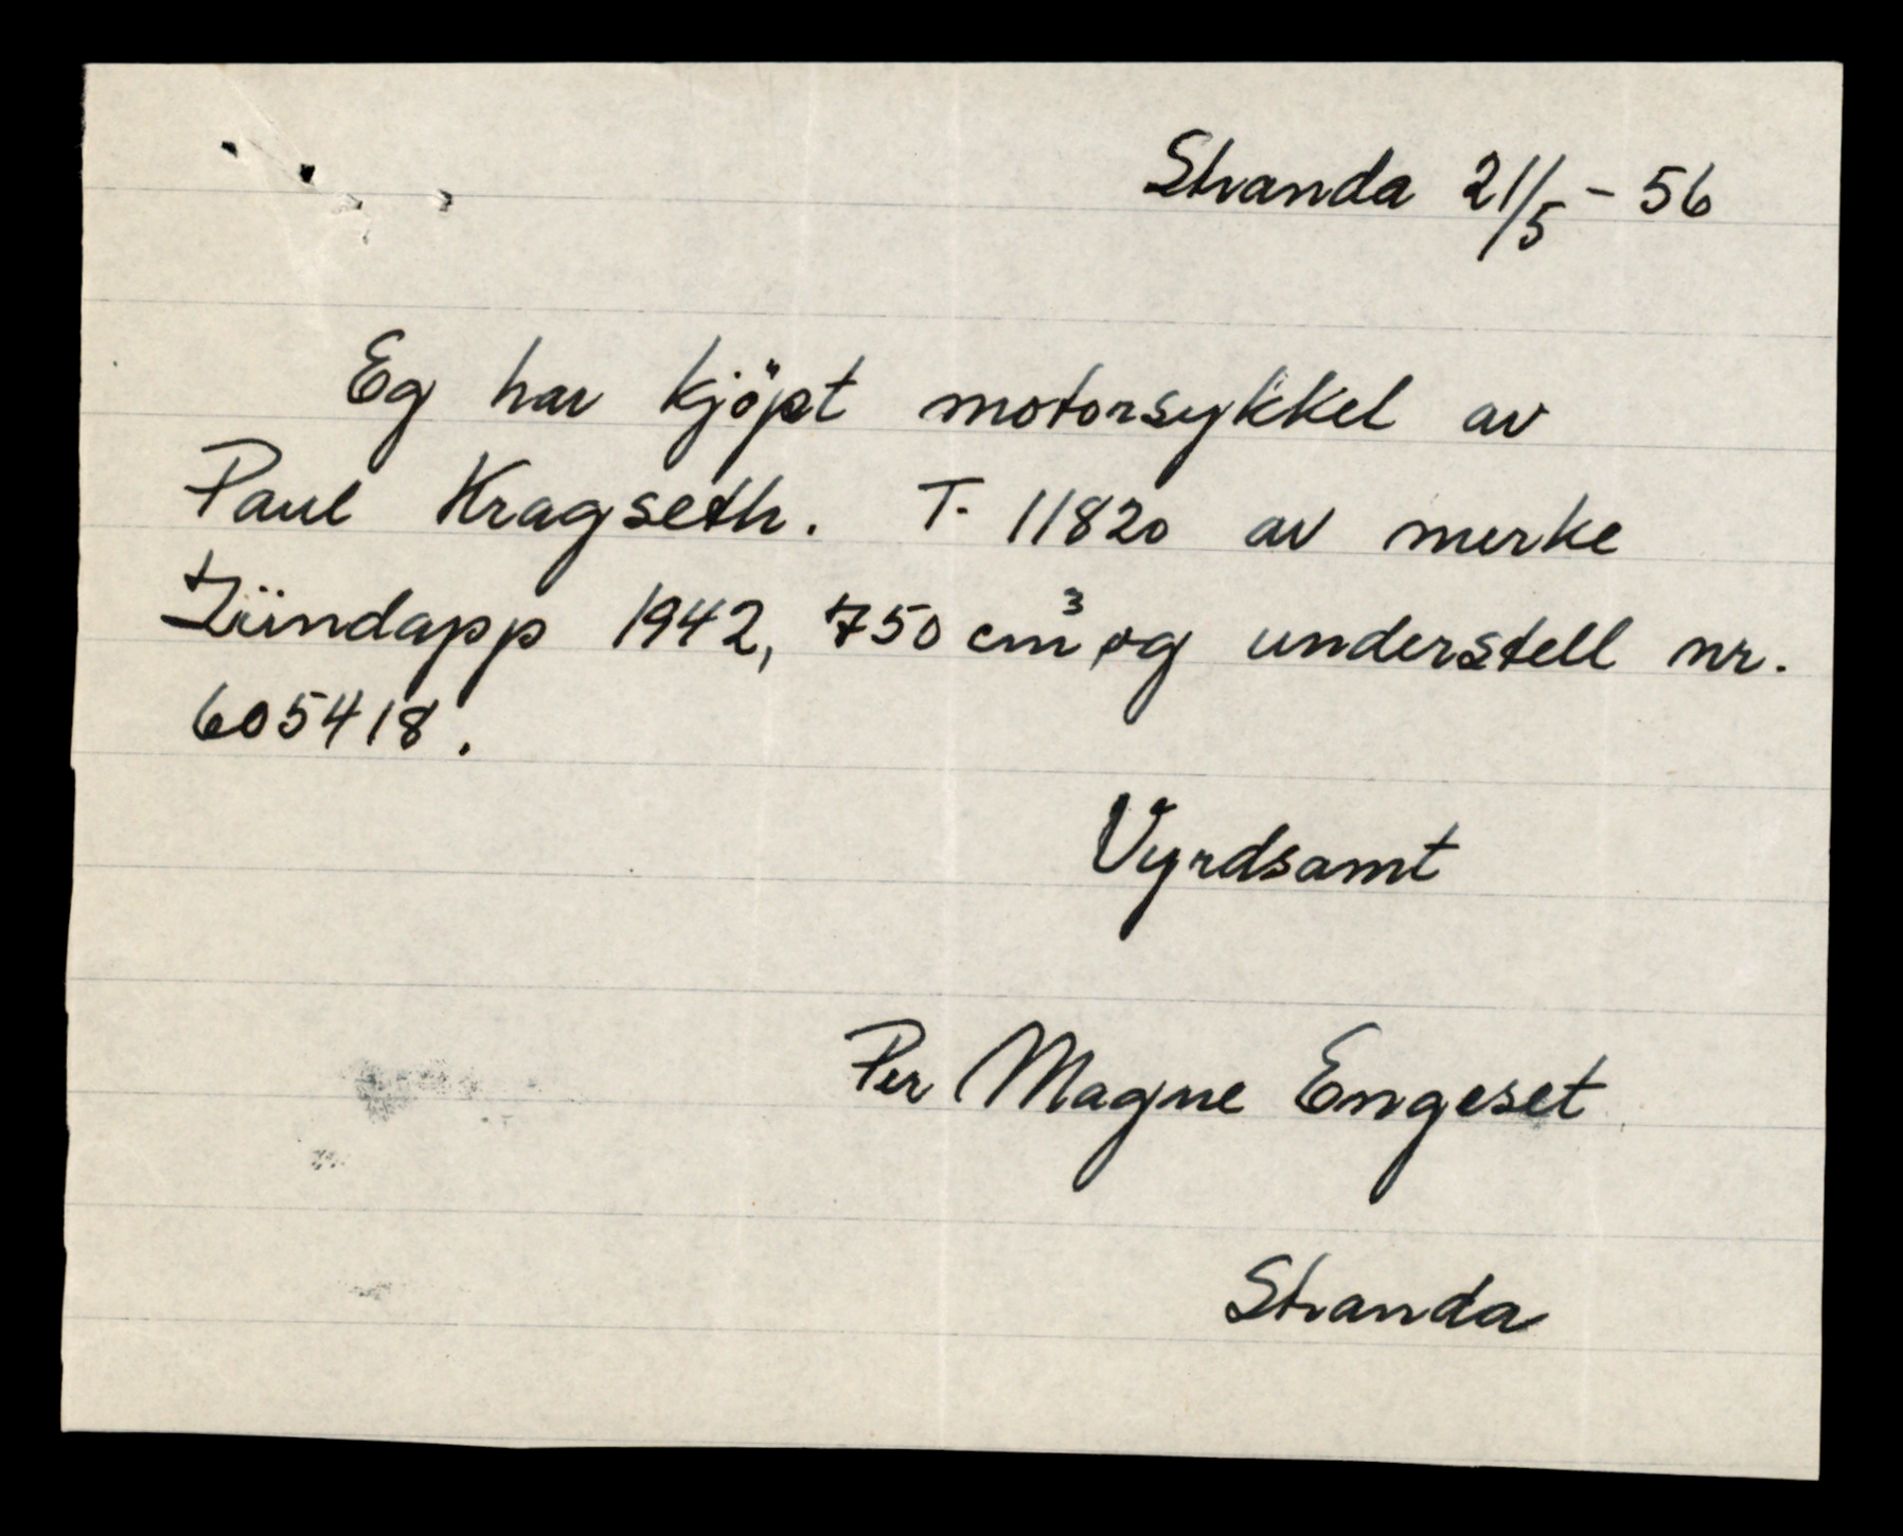 Stranda 21/5 - 56
Eg har kjöpt motorsykkel av
Paul Kragseth. T- 11820 av merke
Zündapp 1942, 750 cm³ og understell nr.
605418.
Vyrdsamt
Per Magne Engeset
Stranda